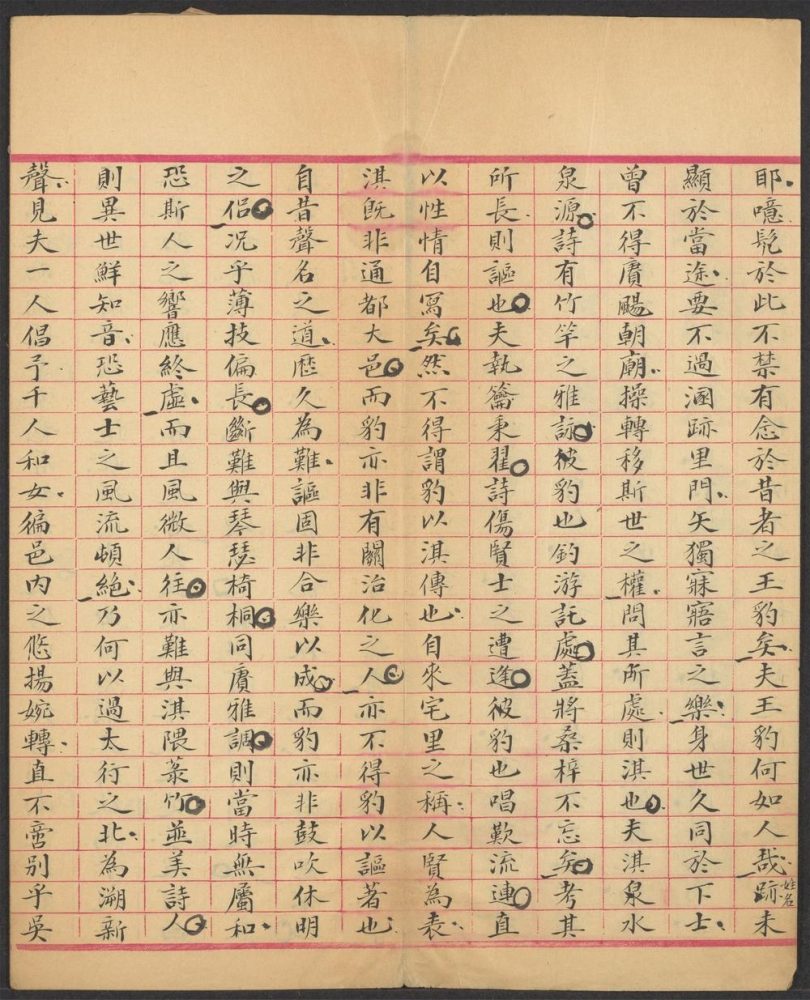 耶噫髡於此不禁有念於昔者之王豹矣夫王豹何如人哉跡未
姓名
顯於當途要不過溷跡里門矢獨寐寤言之樂身世久同於下士
曾不得賡颺朝廟操轉移斯世之權問其所處則淇也夫淇泉水
泉源詩有竹竿之雅詠彼豹也釣游託處蓋將桑梓不忘矣考其
所長則謳也夫執籥秉翟詩傷賢士之遭逢彼豹也唱歎流連直
以性情自寫矣然不得謂豹以淇傳也自來宅里之稱人賢為表
淇旣非通都大邑而豹亦非有關治化之人亦不得豹以謳著也
自昔聲名之道歷久為難謳固非合樂以成而豹亦非鼓吹休明
之侶況乎薄技偏長斷難與琴瑟椅桐同賡雅調則當時無屬和
恐斯人之響應終虛而且風微人往亦難與淇隈菉竹並美詩人
則異世鮮知音恐藝士之風流頓絕乃何以過太行之北為溯新
聲見夫一人倡予千人和女徧邑內之悠揚婉轉直不啻別乎吳